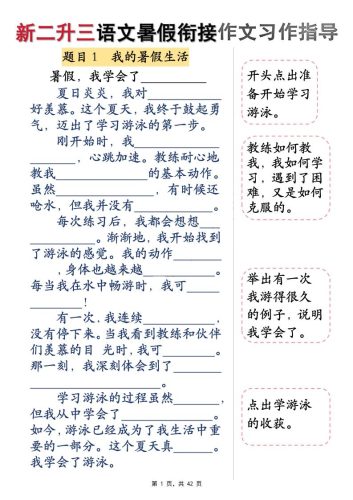 新二升三语文暑假衔接作文习作指导
题目1 我的暑假生活
暑假，我学会了__________
夏日炎炎，我对__________
好羡慕。这个夏天，我终于鼓起勇
气，迈出了学习游泳的第一步。
刚开始时，我__________
________，心跳加速。教练耐心地
教我__________的基本动作。
虽然__________，有时候还
呛水，但我并没有________。
每次练习后，我都会想想____
__________。渐渐地，我开始找到
了游泳的感觉。我的动作________
______,身体也越来越________。
每当我在水中畅游时，我可______
________！
有一次，我连续__________，
没有停下来。当我看到教练和伙伴
们羡慕的目 光时,我可________。
那一刻，我深刻体会到了________
______________。
学习游泳的过程虽然________，
但我从中学会了______________。
如今,游泳已经成为了我生活中重
要的一部分。这个夏天真______。
我学会了游泳。
开头点出准
备开始学习
游泳。
教练如何教
我，我如何学
习，遇到了困
难，又是如何
克服的。
举出有一次
我游得很久
的例子，说明
我学会了。
点出学游泳
的收获。
第 1 页，共 42 页